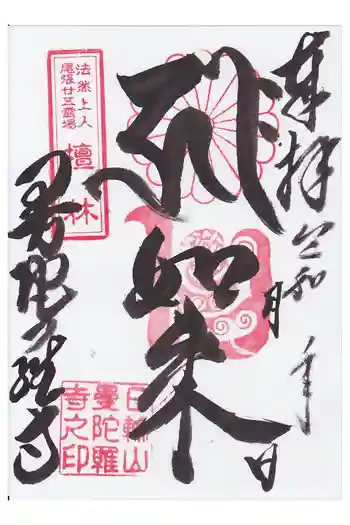 奉拝 令和 年
月 日
弥如来
曼陀羅寺
法然上人
尾張廿五霊場
檀林
日輪山
曼陀羅
寺之印